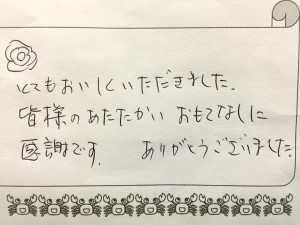 とてもおいしくいただきました.
皆様のあたたかい おもてなしに
感謝です. ありがとうございました.